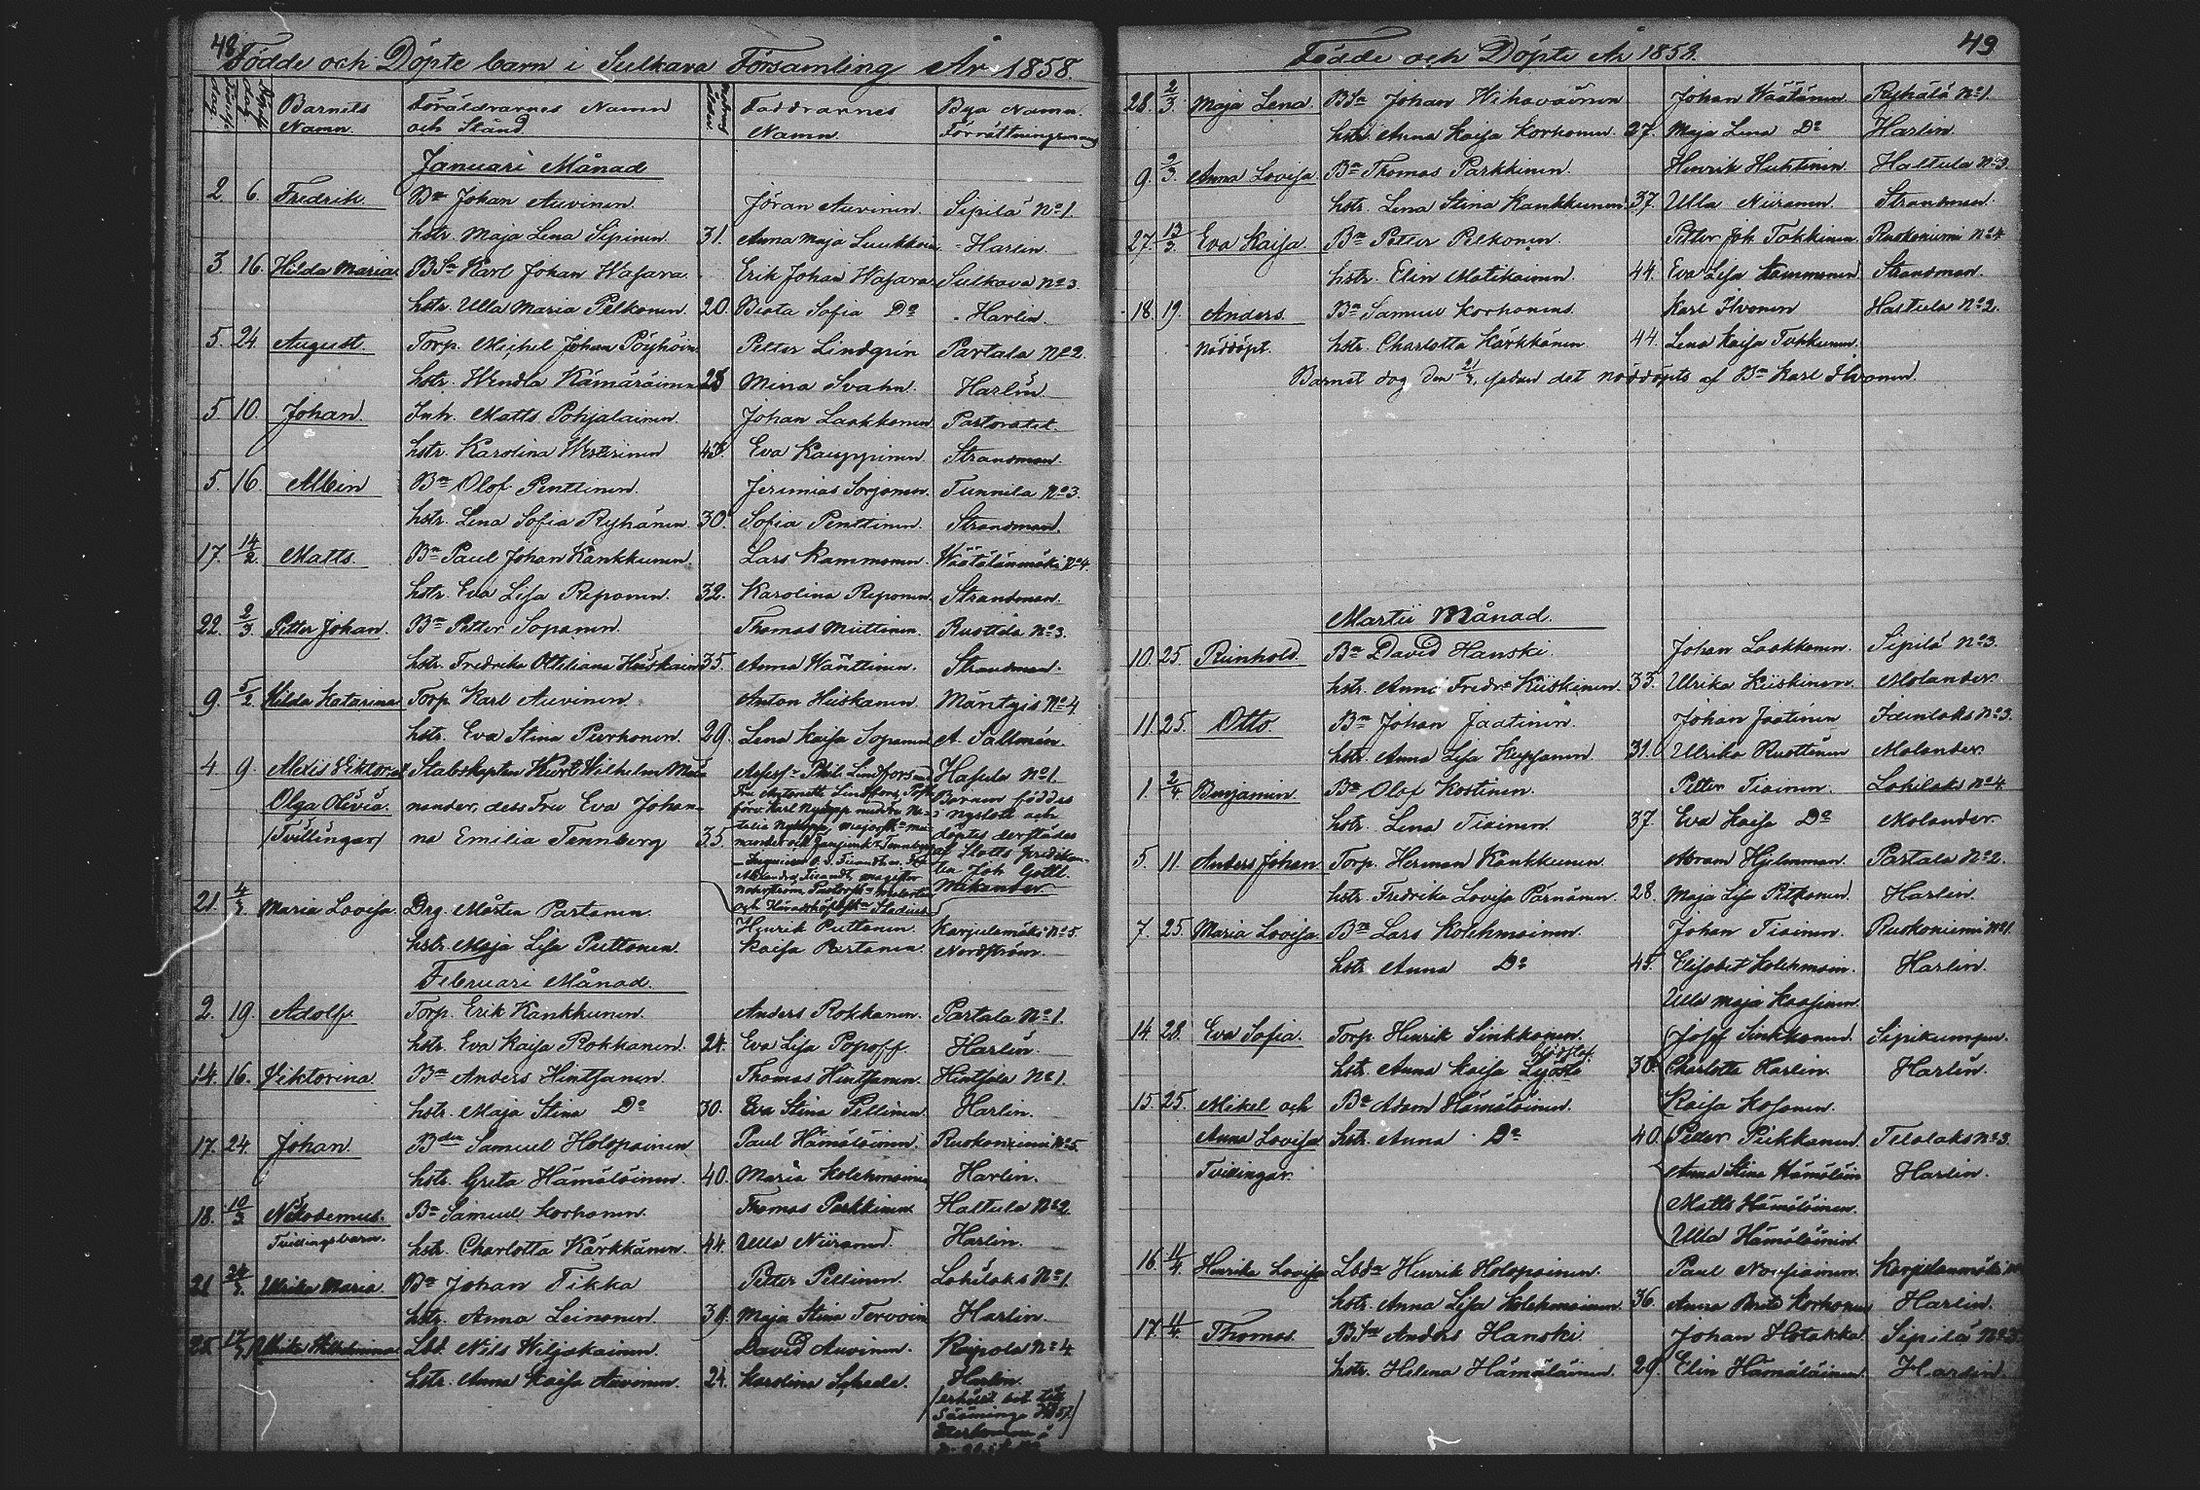 48
Födde och Döpte barn i Sulkava Församling År 1858.
Barnets Namn. Föräldrarnes Namn och Stånd. Faddrarnes Namn. Bya Namn. Förrättningsman
Januari Månad
2. 6. Fredrik Bn Johan Auvinen. Jöran Auvinen Sipilä No 1.
hstr. Maja Lena Sipinen 31. Anna Maja Luukkoin Harlin.
3. 16. Hilda Maria. BSn Karl Johan Wasara Erik Johan Wasara Sulkava No 3.
hstr. Ulla Maria Pelkonen. 20. Beata Sofia Do Harlin.
5. 24. August. Torp. Michel Johan Pöyhöin Petter Lindgrin Partala No 2.
hstr. Wendla Kämäräinen 28 Mina Svahn. Harlin
5. 10. Johan. Inh. Matts Pohjalainen. Johan Laakkonen Pastoratet.
hstr. Karolina Westerinen Eva Kauppinen Strandman.
5. 16. Albin Bn Olof Penttinen. Jeremias Sorjonen. Tunnila No 3.
hstr. Lena Sofia Ryhänen. 30. Sofia Penttinen. Strandman.
17. 14/2. Matts. Bn Paul Johan Kankkunen. Lars Kammonen Wäätälänmäki No 4.
hstr. Eva Lisa Reponen. 32. Karolina Reponen. Strandman.
22. 2/3. Petter Johan. Bn Petter Sopanen. Thomas Miettinen. Ruottila No 3.
hstr. Fredrika Otteliana Heiskain 35. Anna Wänttinen. Strandman.
9. 5/2 Hilda Katarina Torp. Karl Auvinen. Anton Heiskanen Mäntyis No 4.
hstr. Eva Stina Purhonen. 29. Lena Kaisa Sopanen A. Sallmén.
4. 9. Alexis Viktor o Stabskapten Kurt Wilhelm Mu Hasula No 1.
Olga Olivia nander, dess Fru Eva Johan Fru Antoinette Lindfors Barnen föddes
/Tvillingar/ na Emilia Tennberg 35. i Nyslott och döptes derstädes af Slotts predikan ten Joh. Gottl. Wikander
21. Maria Lovisa. Drg. Mårten Partanen. Henrik Puttonen. Karjulamäki No 5.
hstr. Maja Lisa Puttonen. Kaisa Partanen. Nordström.
Februari Månad.
2. 19. Adolf. Torp. Erik Kankkunen. Anders Rokkanen. Partala No 1.
hstr. Eva Kaisa Rokkanen. 24. Eva Lisa Popoff. Harlin.
14. 16. Viktorina. Bn Anders Hintsanen. Thomas Hintsanen. Hintsala No 1.
hstr. Maja Stina Do 30. Eva Stina Pellinen Harlin.
17. 24. Johan. Samuel Holopainen Paul Hämäläinen Ruokoniemi No 5.
hstr. Greta Hämäläinen. 40. Maria Kolehmainen Harlin.
18. 10/3 Nikodemus. Bn Samuel Korhonen. Thomas Parkkinen Haltula No 2
Tvillingsbarn. hstr. Charlotta Kärkkänen. 44. Ulla Niiranen. Harlin.
21. Ulrika Maria. Bn Johan Tikka Petter Pellinen. Lohilaks No 1.
hstr. Anna Leinonen. 39. Maja Stina Tervoin Harlin.
25. Ulrika Wilhelmina Nils Wiljakainen. David Auvinen. Kaipola No 4.
hstr. Anna Kaisa Auvinen. 24. Karolina Schade. Harlin.
49
Födde och Döpte År 1858.
28. 2/3. Maja Lena. BSn Johan Wihavainen Johan Wäätänen Ryhälä No 1.
hstr. Anna Kaisa Korhonen. 27. Maja Lena Do Harlin.
9. 9/3. Anna Lovisa Bn Thomas Parkkinen. Henrik Huhtinen Haltula No 3.
hstr. Lena Stina Kankkunen. 37. Ulla Niiranen Strandman.
27. 13/3. Eva Kaisa Bn Petter Pelkonen. Petter Joh. Takkinen. Ruokoniemi No 4
hstr. Elin Matikainen. 44. Eva Lisa Kammonen Strandman.
18. 19. Anders. Bn Samuel Korhonens Karl Ihvonen Haltula No 2.
Nöddöpt. hstr. Charlotta Kärkkänen 44. Lena Kaisa Takkunen.
Barnet dog den sedan det nöddöpts af Bn Karl Ihvonen.
Martii Månad.
10. 25. Reinhold. Bn David Hanski. Johan Laakkonen. Sipilä No 3.
hstr. Anna Fredr. Kiiskinen. 33. Ulrika Kiiskinen. Molander.
11. 25. Otto. Bn Johan Jaatinen Johan Jaatinen Idenlaks No 3.
hstr. Anna Lisa Kepponen 31. Ulrika Ruottinen Molander.
1. 2/4 Benjamin. Bn Olof Kostinen. Petter Tiainen. Lohilaks No 4.
hstr. Lena Tiainen. 37. Eva Kaisa Do Molander.
5. 11. Anders Johan Torp. Herman Kankkunen. Abram Hjelmman. Partala No 2.
hstr. Fredrika Lovisa Pärnänen 28. Maja Lisa Pitkonen. Harlin.
7. 25. Maria Lovisa. Bn Lars Kolehmainen. Johan Tiainen. Ruokoniemi No 1.
hstr. Anna Do 45. Elisabet Kolehmain. Harlin.
Ulla Maja Kaasinen
14. 28. Eva Sofia. Torp. Henrik Sinkkonen. Josef Sinkkonen. Sipikumpu.
hstr. Anna Kaisa 30. Charlotta Karlin Harlin.
Kaisa Kosonen.
15. 25. Mikel och Bn Adam Hämäläinen.
Anna Lovisa hstr. Anna Do 40. Petter Piikkanen. Telalaks No 3.
Tvillingar. Anna Stina Hämäläin Harlin.
Matts Hämäläinen.
Ulla Hämäläinen.
16. 11/4. Henrika Lovisa Henrik Holopainen. Paul Karjulanmäki
hstr. Anna Lisa Kolehmainen. 36. Anna Brita Korhonen Harlin.
17. 11/4. Thomas. BSn Anders Hanski Johan Hotakka Sipilä No 3.
hstr. Helena Hämäläinen. 29. Elin Hämäläinen. Harlin.